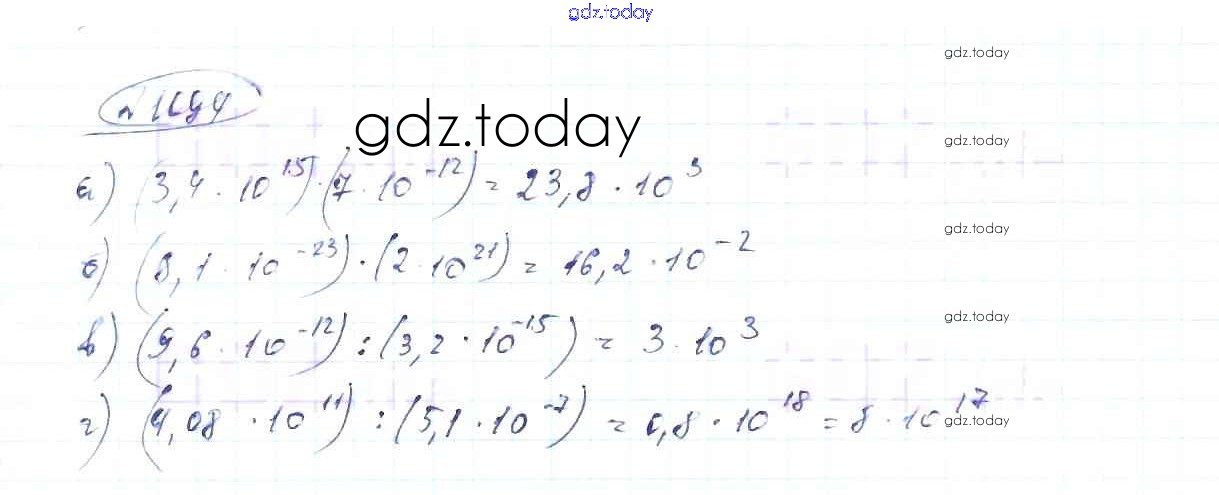 gdz.today
gdz.today
№ 1194
gdz.today
gdz.today
а) (3,4 · 10¹⁵) · (7 · 10⁻¹²) = 23,8 · 10³
gdz.today
б) (8,1 · 10⁻²³) · (2 · 10²¹) = 16,2 · 10⁻²
gdz.today
в) (9,6 · 10⁻¹²) : (3,2 · 10⁻¹⁵) = 3 · 10³
г) (4,08 · 10¹¹) : (5,1 · 10⁻⁷) = 0,8 · 10¹⁸ = 8 · 10¹⁷
gdz.today